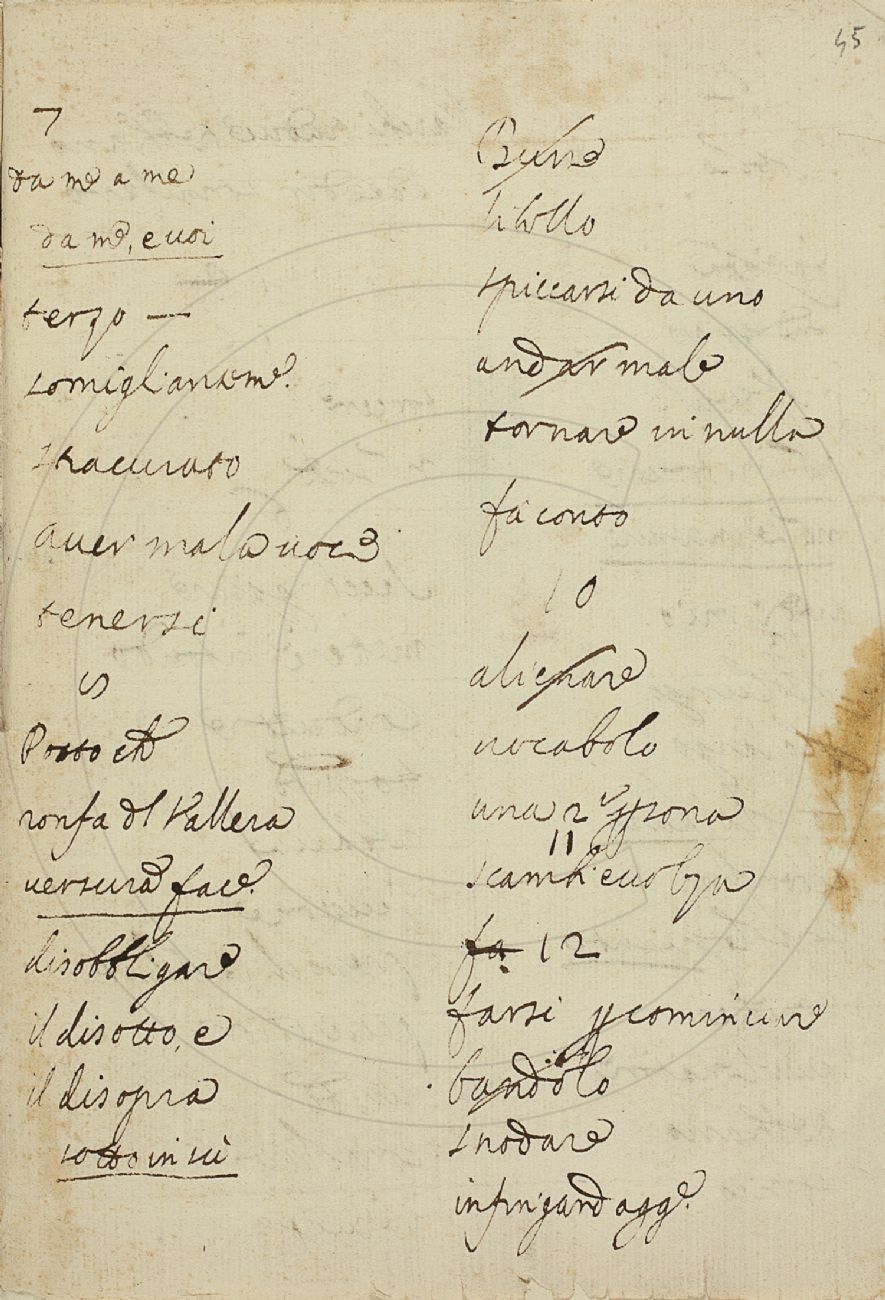 45
7
da me a me
da me, e voi
terzo —
somiglianteme.
stracurato
aver mala voce
tenersi
S
Posto che
ronfa del Vallera
versura face.
disobbligare
il disotto, e
il disopra
sotto in sù
Burre
libello
spiccarsi da uno
andar male
tornare in nulla
fa conto
10
alienare
vocabolo
una 2ª persona
11
scambievolza
fa 12
farsi p cominciare
bandolo
snodare
infingardagge.